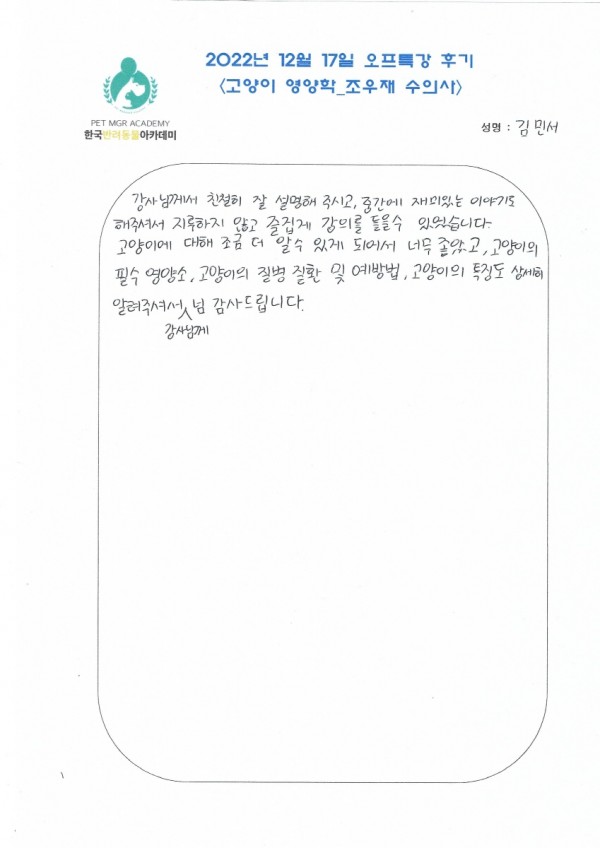 2022년 12월 17일 오프특강 후기
<고양이 영양학_조우재 수의사>
PET MGR ACADEMY
한국반려동물아카데미
성명 : 김민서
강사님께서 친절히 잘 설명해 주시고, 중간에 재미있는 이야기도
해주셔서 지루하지 않고 즐겁게 강의를 들을수 있었습니다.
고양이에 대해 조금 더 알수 있게 되어서 너무 좋았고, 고양이의
필수 영양소, 고양이의 질병 질환 및 예방법, 고양이의 특징도 상세히
알려주셔서 님 감사드립니다.
강사님께